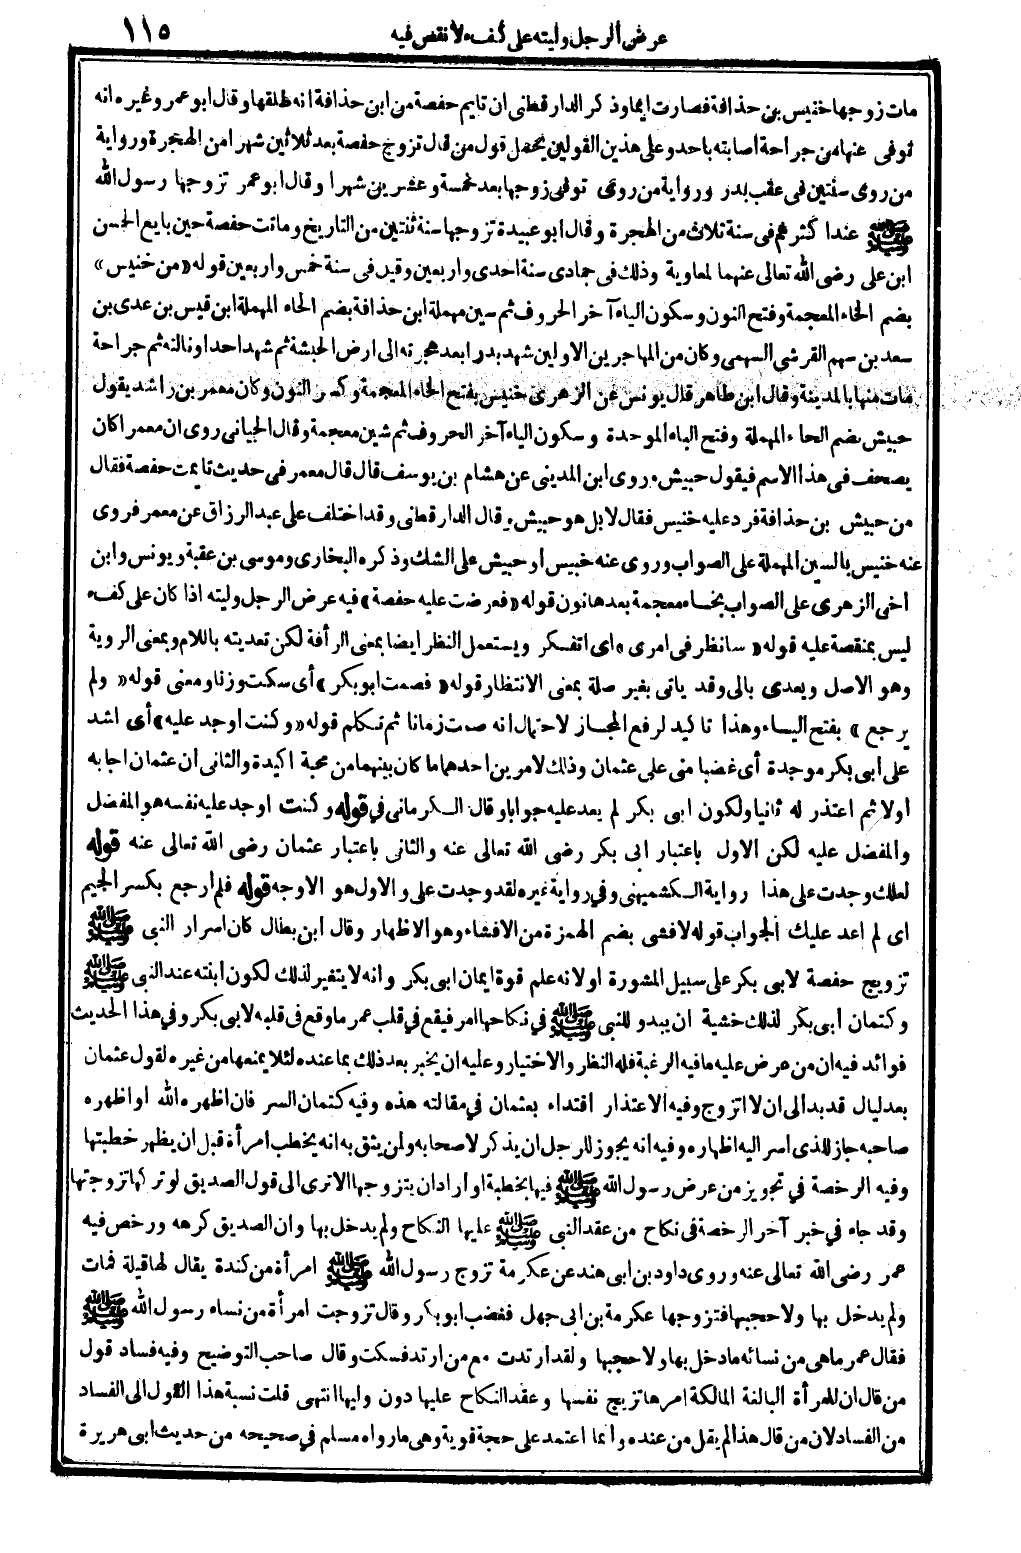 عرض الرجل وليته على كفء لا نقص فيه ١١٥
مات زوجها خنيس بن حذافة فصارت ايما وذكر الدارقطنى ان تايم حفصة من ابن حذافة انه طلقها وقال ابو عمر وغيره انه
توفى عنها من جراحة أصابته باحد وعلى هذين القولين يحمل قول من قال تزوج حفصة بعد ثلاثين شهرا من الهجرة ورواية
من روى سنتين فى عقب بدر ورواية من روى توفى زوجها بعد خمسة وعشرين شهرا وقال ابو عمر تزوجها رسول الله
ﷺ عند اكثرهم فى سنة ثلاث من الهجرة وقال ابو عبيدة تزوجها سنة ثنتين من التاريخ وماتت حفصة حين بايع الحسن
ابن على رضى الله تعالى عنهما لمعاوية وذلك فى جمادى سنة احدى واربعين وقيد فى سنة خمس واربعين قوله «من خنيس»
بضم الخاء المعجمة وفتح النون وسكون الياء آخر الحروف ثم سين مهملة ابن حذافة بضم الحاء المهملة ابن قيس بن عدى بن
سعد بن سهم القرشى السهمى وكان من المهاجرين الاولين شهد بدرا بعد هجرته الى ارض الحبشة ثم شهد احدا ونالته ثم جراحة
مات منها بالمدينة وقال ابن طاهر قال يونس عن الزهرى خنيس بفتح الخاء المعجمة وكسر النون وكان معمر بن راشد يقول
حبيش بضم الحاء المهملة وفتح الباء الموحدة وسكون الياء آخر الحروف ثم شين معجمة وقال الجيانى روى ان معمرا كان
يصحف فى هذا الاسم فيقول حبيش. روى ابن المدينى عن هشام بن يوسف قال قال معمر فى حديث تايمت حفصة فقال
من حبيش بن حذافة فرد عليه خنيس فقال لا بل هو حبيش وقال الدارقطنى وقد اختلف على عبد الرزاق عن معمر فروى
عنه خنيس بالسين المهملة على الصواب وروى عنه خبيس او حبيش على الشك وذكره البخارى وموسى بن عقبة ويونس وابن
اخى الزهرى على الصواب بخاء معجمة بعدها نون قوله «فعرضت عليه حفصة» فيه عرض الرجل وليته اذا كان على كفء
ليس بمنقصة عليه قوله «سانظر فى امرى» اى اتفكر ويستعمل النظر ايضا بمعنى الرأفة لكن تعديته باللام وبمعنى الروية
وهو الاصل ويعدى بالى وقد ياتى بغير صلة بمعنى الانتظار قوله «فصمت ابو بكر» أى سكت وزنا ومعنى قوله «ولم
يرجع» بفتح الياء وهذا تاكيد لرفع المجاز لاحتمال انه صمت زمانا ثم تكلم قوله «وكنت اوجد عليه» أى اشد
على أبى بكر موجدة أى غضبا منى على عثمان وذلك لامرين احدهما ما كان بينهما من محبة اكيدة والثانى ان عثمان اجابه
اولا ثم اعتذر له ثانيا ولكون ابى بكر لم يعد عليه جوابا وقال الكرمانى في قوله وكنت اوجد عليه نفسه هو المفضل
والمفضل عليه لكن الاول باعتبار ابى بكر رضى الله تعالى عنه والثانى باعتبار عثمان رضى الله تعالى عنه قوله
لعلك وجدت على هذا رواية الكشميهنى وفي رواية غيره لقد وجدت على والاول هو الاوجه قوله فلم ارجع بكسر الجيم
اى لم اعد عليك الجواب قوله لافشى بضم الهمزة من الافشاء وهو الاظهار وقال ابن بطال كان اسرار النبى ﷺ
تزويج حفصة لابى بكر على سبيل المشورة او لانه علم قوة ايمان ابى بكر وانه لا يتغير لذلك لكون ابنته عند النبى ﷺ
وكتمان أبى بكر لذلك خشية ان يبدو للنبى ﷺ في نكاحها امر فيقع في قلب عمر ما وقع فى قلبه لابى بكر وفي هذا الحديث
فوائد فيه ان من عرض عليه ما فيه الرغبة فله النظر والاختيار وعليه ان يخبر بعد ذلك بما عنده لئلا يمنعها من غيره لقول عثمان
بعد ليال قد بدا لى ان لا اتزوج وفيه الاعتذار اقتداء بعثمان في مقالته هذه وفيه كتمان السر فان اظهره الله او اظهره
صاحبه جاز للذى اسر اليه اظهاره وفيه انه يجوز للرجل ان يذكر لاصحابه ولمن يثق به انه يخطب امرأة قبل ان يظهر خطبتها
وفيه الرخصة في تجويز من عرض رسول الله ﷺ فيها بخطبة او أراد ان يتزوجها الا ترى الى قول الصديق لو تركها تزوجتها
وقد جاء في خبر آخر الرخصة فى نكاح من عقد النبى ﷺ عليها النكاح ولم يدخل بها وان الصديق كرهه ورخص فيه
عمر رضى الله تعالى عنه وروى داود بن ابى هند عن عكرمة تزوج رسول الله ﷺ امرأة من كندة يقال لها قيلة فمات
ولم يدخل بها ولا حجبها فتزوجها عكرمة بن ابى جهل فغضب ابو بكر وقال تزوجت امرأة من نساء رسول الله ﷺ
فقال عمر ما هى من نسائه ما دخل بها ولا حجبها ولقد ارتدت مع من ارتد فسكت وقال صاحب التوضيح وفيه فساد قول
من قال ان للمرأة البالغة المالكة امرها تزيج نفسها وعقد النكاح عليها دون وليها انتهى قلت نسبة هذا القول الى الفساد
من الفساد لان من قال هذا لم يقل من عنده وانما اعتمد على حجة قوية وهى ما رواه مسلم في صحيحه من حديث ابى هريرة